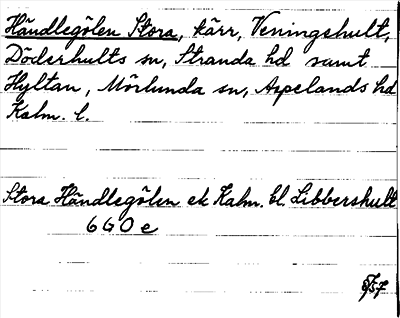 Händlegölen Stora, kärr, Veningshult,
Döderhults sn, Stranda hd samt
Hyltan, Mörlunda sn, Aspelands hd
Kalm. l.
Stora Händlegölen ek Kalm. bl. Libbershult
6 G O e